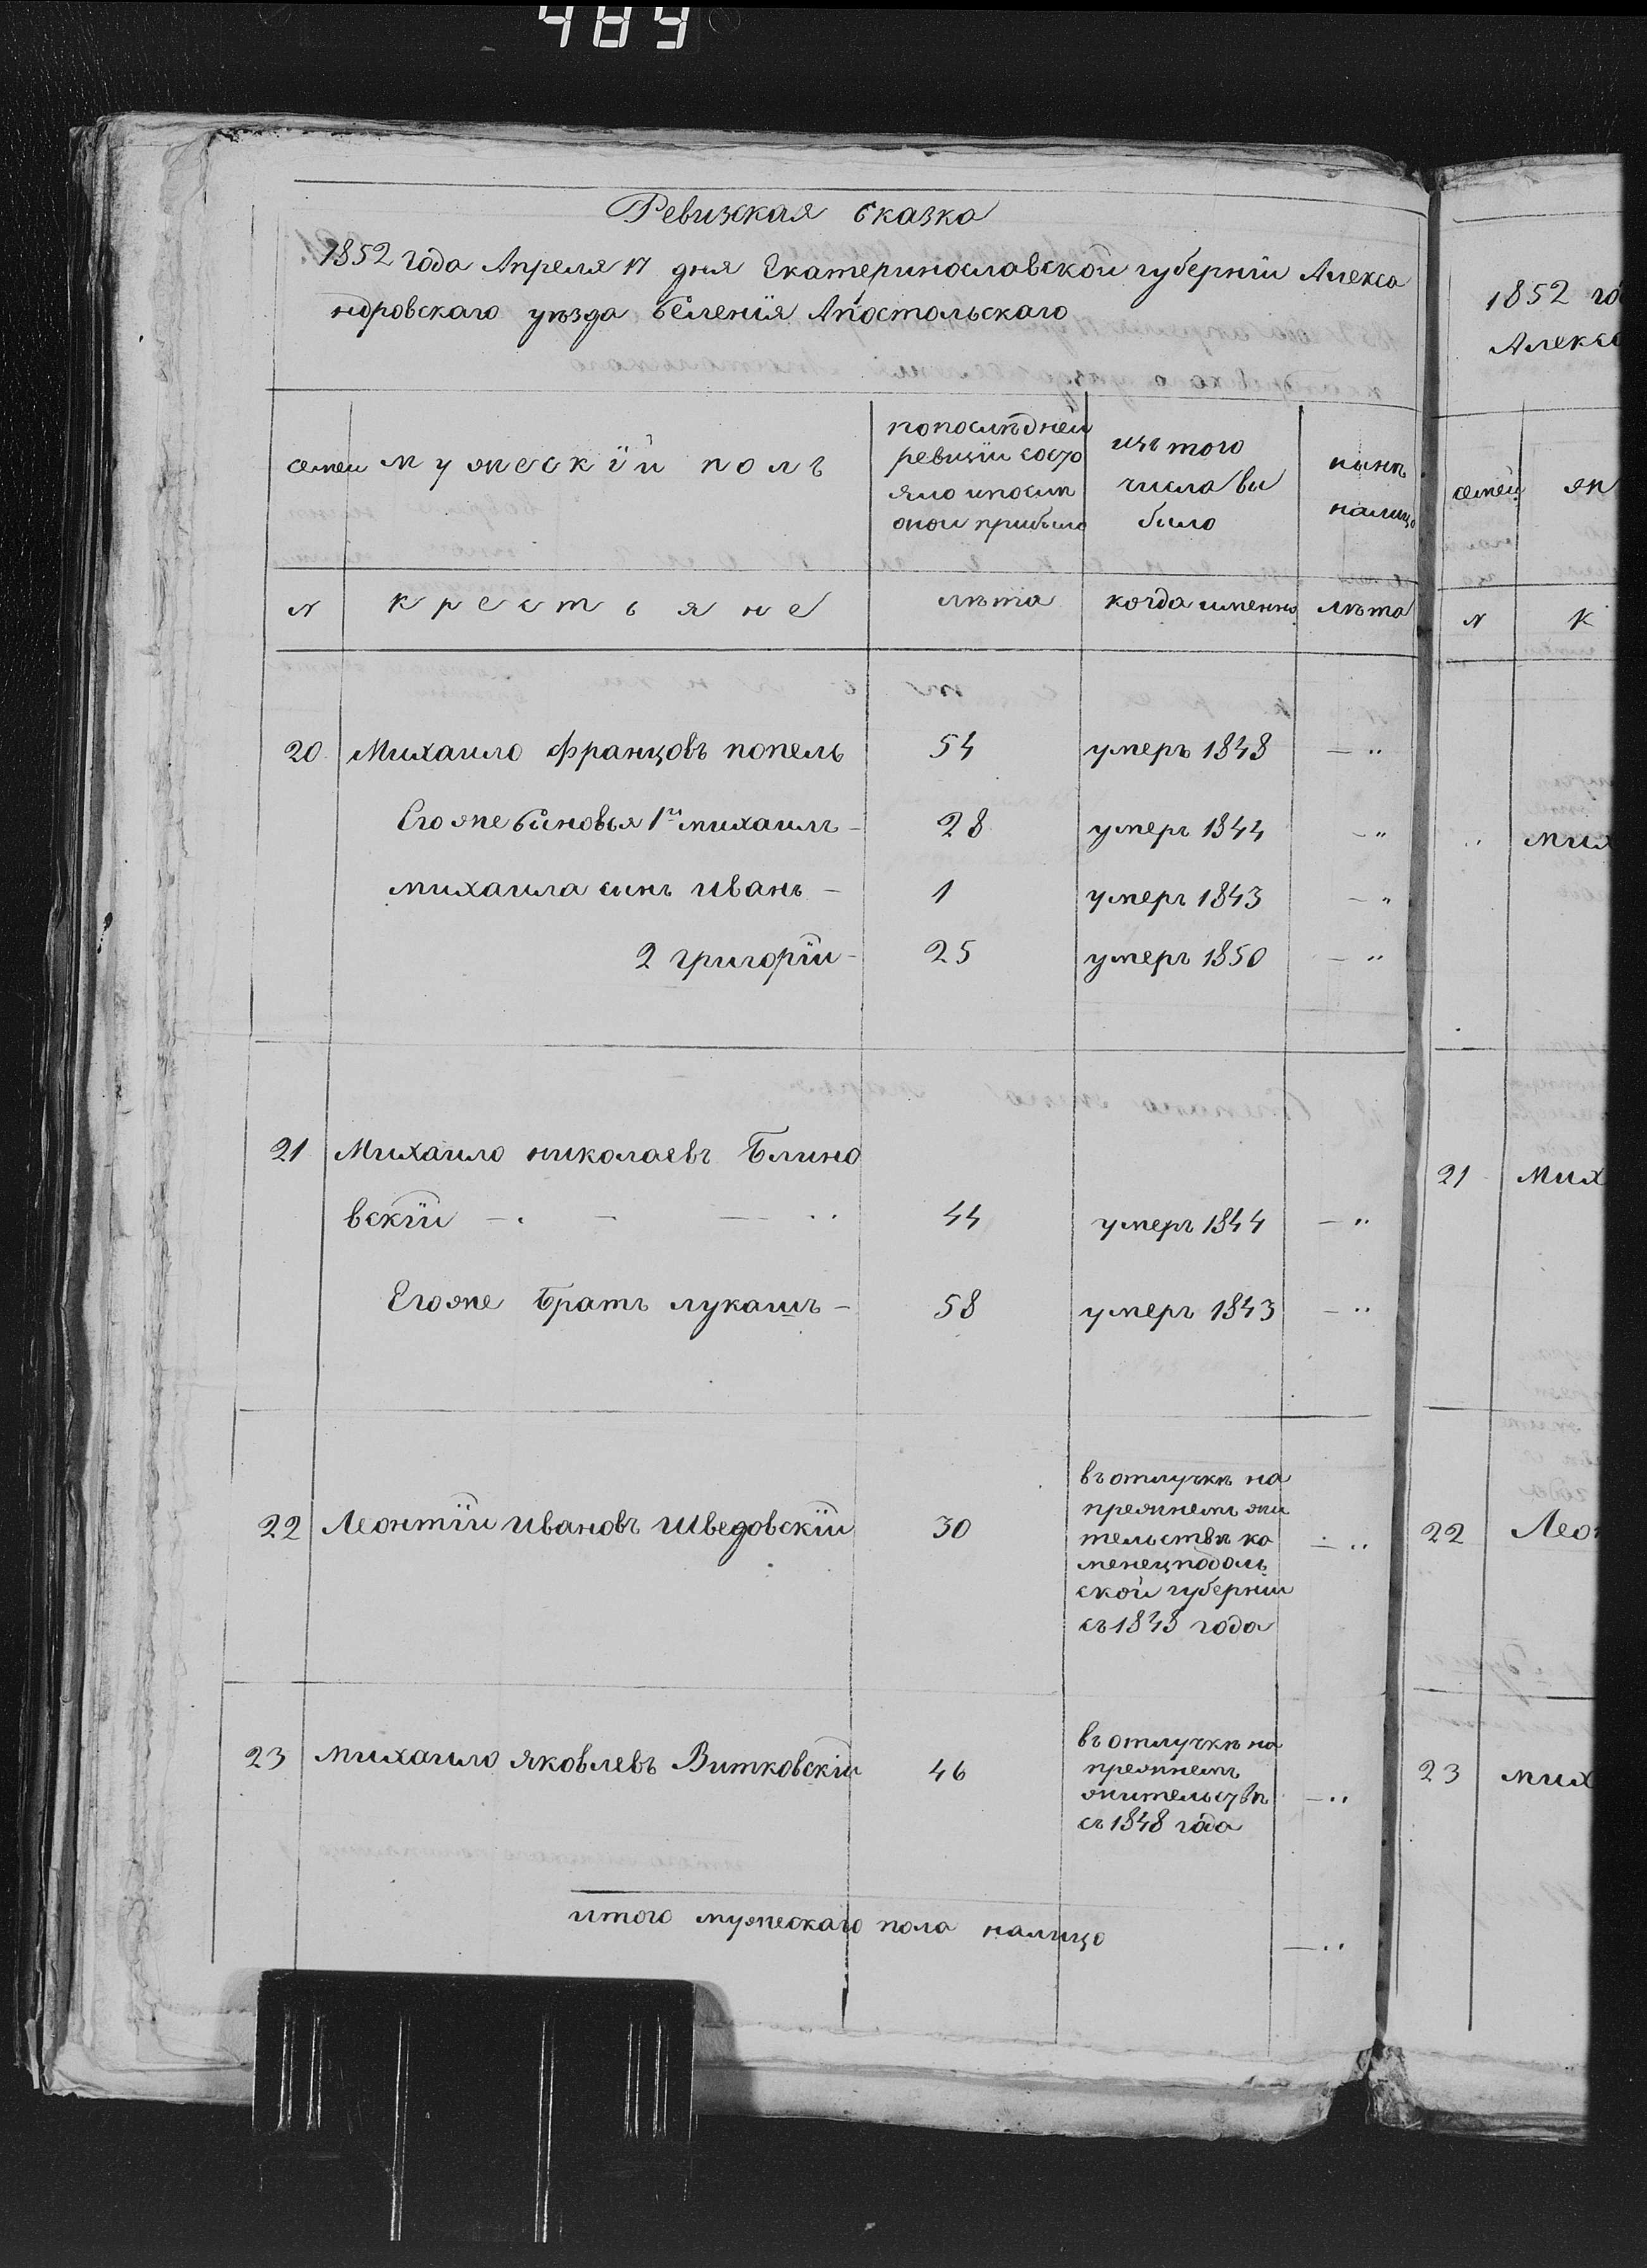 489
Ревизкая сказка
1852 года Апреля 17 дня Екатеринославской губернїи Алекса
ндровскаго уѣзда Селенїя Апостольскаго
семеи мужескїй полъ
попослѣдней
ревизїи состо
яло ипослѣ
оной прибыло
изъ того
числа вы
было
нынѣ
налицо
№ крестьяне лѣта когда именно лѣта
20 Михаило Францовъ попель 54 умеръ 1848 — "
Егоже Сыновья 1й михаилъ - 28 умеръ 1844 — "
михаила сынъ иванъ - 1 умеръ 1843 — "
2 григорїй - 25 умеръ 1850 — "
21 Михаило николаевъ Блино
вскїй 44 умеръ 1844 — "
Егоже Братъ лукашъ - 58 умеръ 1843 — "
22 Леонтїй ивановъ шведовскїй 30
въ отлучкѣ на
прежнемъ жи
тельствѣ ка
менецподоль
ской губернїи
съ 1848 года
— "
23 михаило яковлевъ Витковскїй 46
въ отлучкѣ на
прежнемъ
жительствѣ
съ 1848 года
— "
итого мужескаго пола налицо — "
1852 го
Алекса
семей
№ К
мих
21 Мих
22 Леон
23 мих